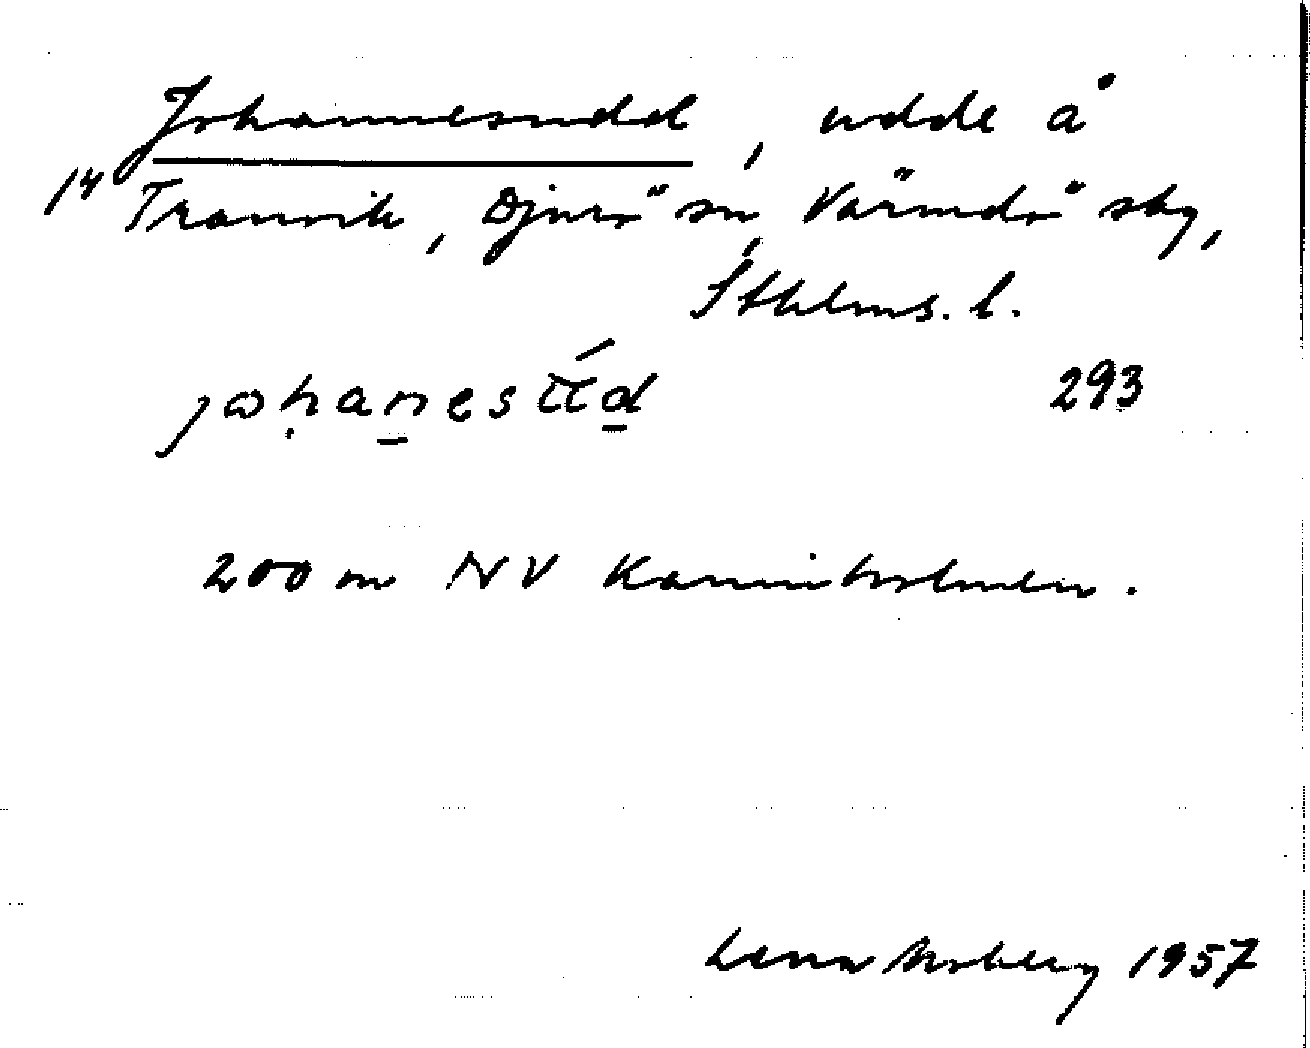 Johannesudd, udde å
14 Tranvik, Djurö sn, Värmdö skg,
Sthlms. l.
johanesúd 293
200 m NV Kaninholmen.
Lena Moberg 1957